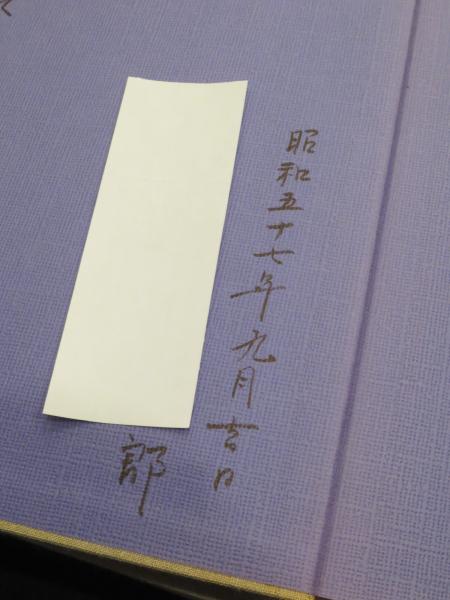 昭和五十七年九月吉日
郎